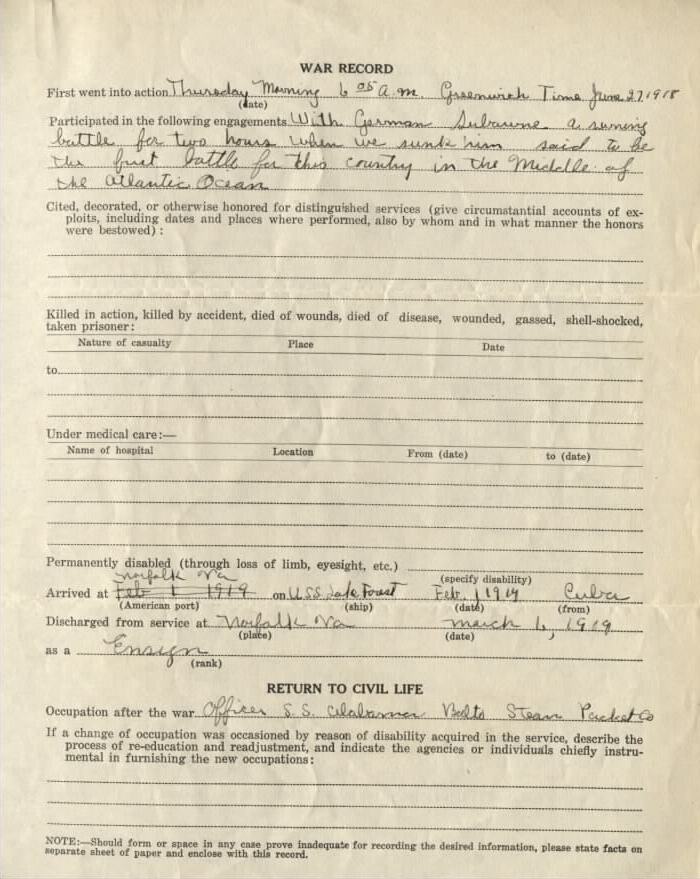 WAR RECORD
First went into action Thursday Morning 6 05 A.M. Greenwich Time June 27, 1918
(date)
Participated in the following engagements With German a runing
battle for two hours when we sunk him said to be
the first battle for this country in the Middle of
the Atlantic Ocean
Cited, decorated, or otherwise honored for distinguished services (give circumstantial accounts of ex-
ploits, including dates and places where performed, also by whom and in what manner the honors
were bestowed) :
Killed in action, killed by accident, died of wounds, died of disease, wounded, gassed, shell-shocked,
taken prisoner:
Nature of casualty Place Date
to
Under medical care:—
Name of hospital Location From (date) to (date)
Permanently disabled (through loss of limb, eyesight, etc.)
(specify disability)
Norfolk Va
Arrived at Feb 1 1919 on U.S.S. Lake Forest Feb. 1 1919 Cuba
(American port) (ship) (date) (from)
Discharged from service at Norfolk Va March 1, 1919
(place) (date)
as a Ensign
(rank)
RETURN TO CIVIL LIFE
Occupation after the war Officer S.S. Alabama Balto Steam Packet Co
If a change of occupation was occasioned by reason of disability acquired in the service, describe the
process of re-education and readjustment, and indicate the agencies or individuals chiefly instru-
mental in furnishing the new occupations:
NOTE:—Should form or space in any case prove inadequate for recording the desired information, please state facts on
separate sheet of paper and enclose with this record.